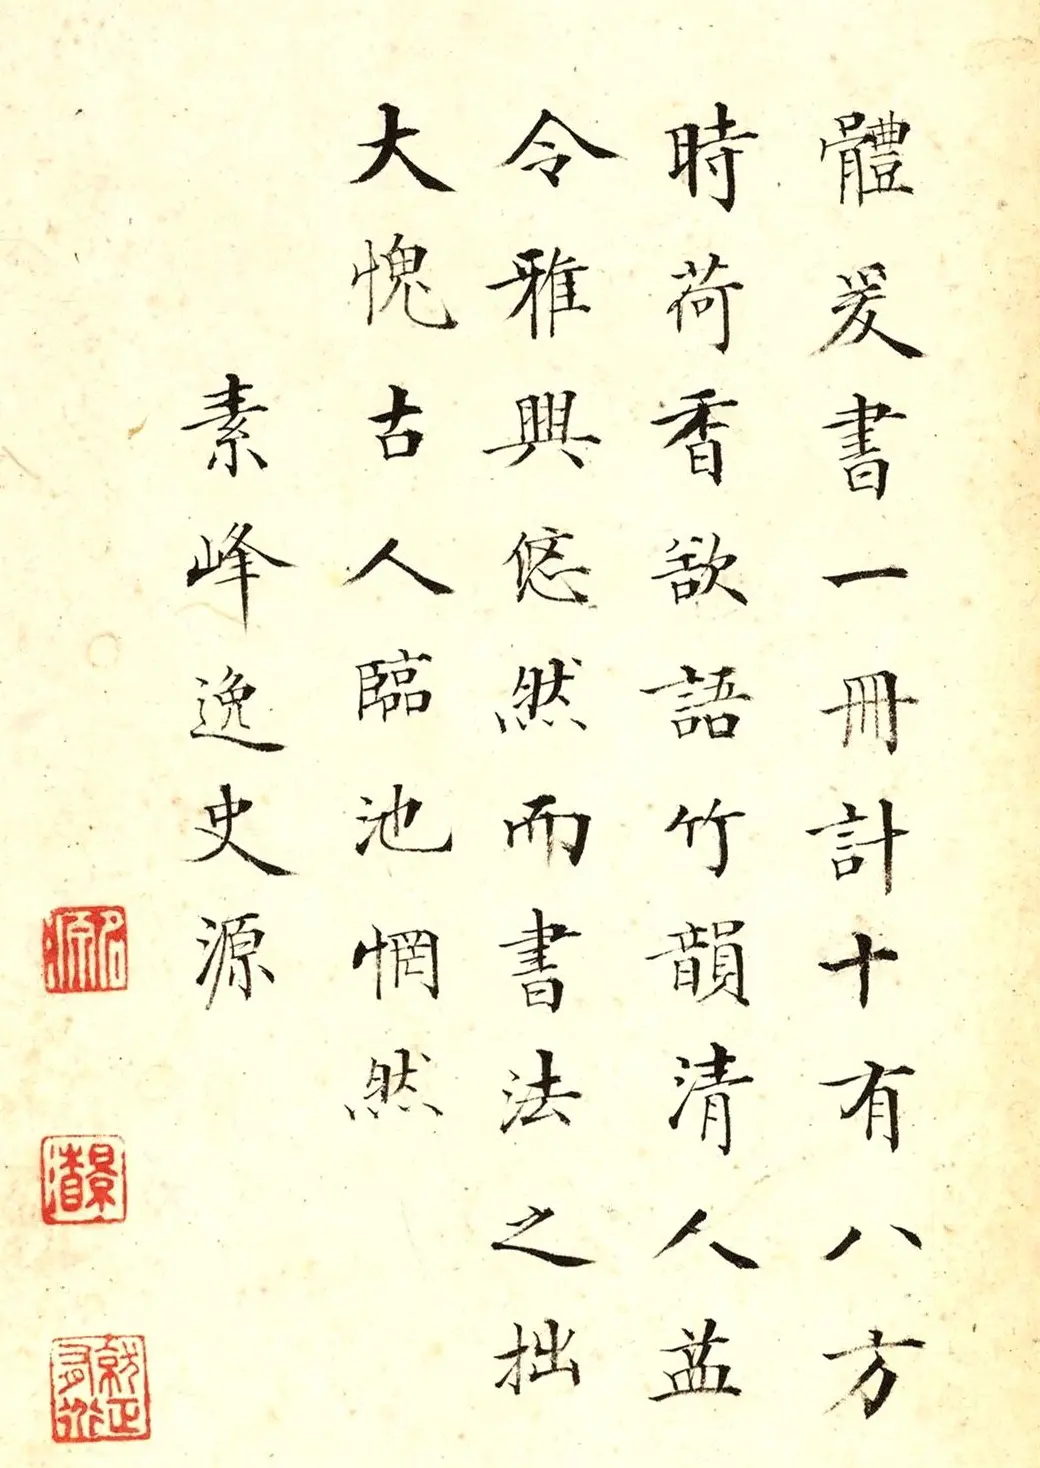 體爰書一冊計十有八方
時荷香欲語竹韻清人益
令雅興悠然而書法之拙
大愧古人臨池惘然
素峰逸史源
名源
就正有道